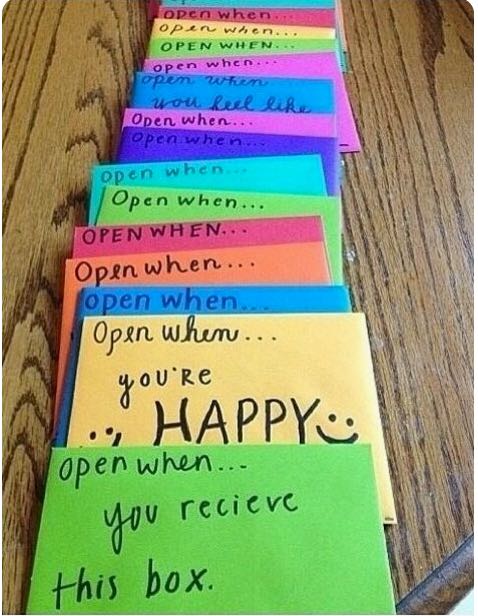 open when...
open when...
OPEN WHEN...
open when...
open when
you feel like
Open when...
Open when...
open when...
Open when...
OPEN WHEN...
Open when...
open when...
Open when...
you're
HAPPY
open when...
you recieve
this box.